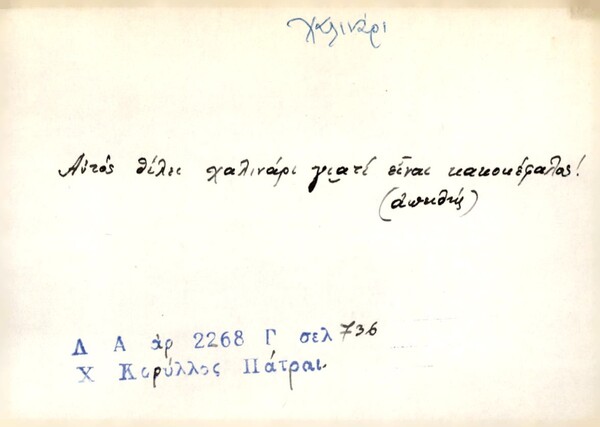 Χαλινάρι
Αὐτὸς θέλει χαλινάρι γιατί εἶναι κακοκέφαλος!
(ἀπειθής)
Δ Α ἀρ 2268 Γ σελ 736
Χ Κορύλλος Πάτραι